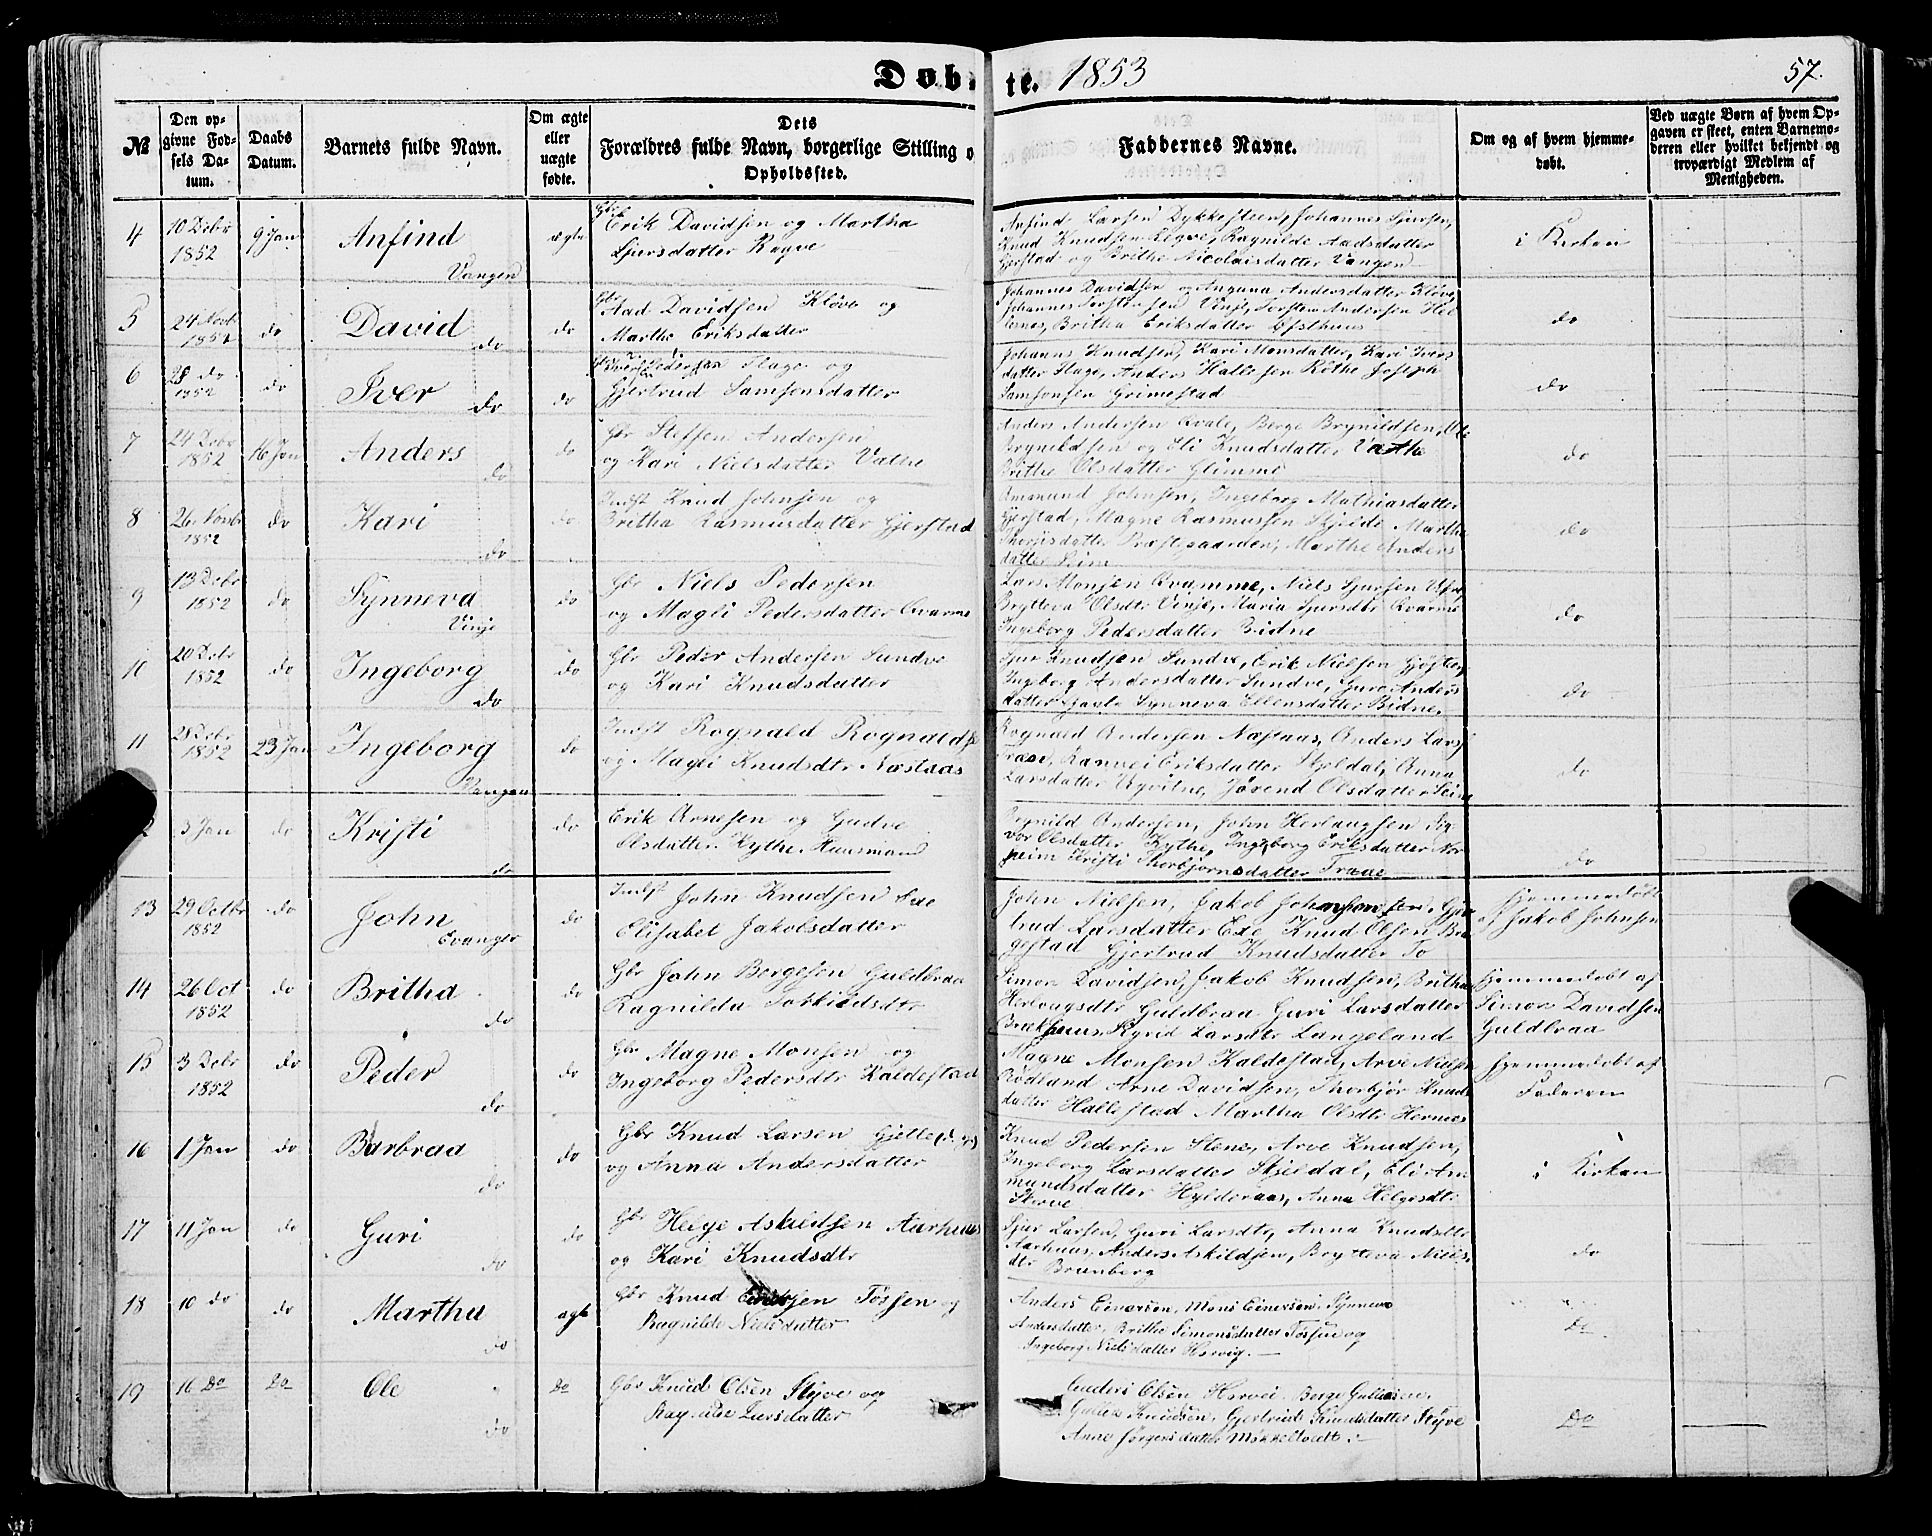 Døbte. 1853
57.
№
Den opgivne Fødsels Datum.
Daabs Datum.
Barnets fulde Navn.
Om ægte eller uægte fødte.
Dets Forældres fulde Navn, borgerlige Stilling o Opholdssted.
Faddernes Navne.
Om og af hvem hjemmedøbt.
Ved uægte Børn af hvem Opgaven er skeet, enten Barnemoderen eller hvilket bekjendt og troværdigt Medlem af Menigheden.
4
10 Debr 1852
9 Jan
Anfind
Vangen
ægte
Gbr Erik Davidsen og Martha
Sjursdatter Røgve
Anfind Larsen Dykkesteen, Johannes Sjursen,
Knud Knudsen Røgve, Ragnilde Aadsdatter
Gjerstad og Brithe Nicolaisdatter Vangen
i Kirken
5
24 Novbr 1852
do
David
do
do
Gbr Aad Davidsen Kløve og
Martha Eriksdatter
Johannes Davidsen og Anguna Andersdatter Kløve,
Johannes Torstensen Vinje, Torsten Andersen
Britha Eriksdatter
do
6
28 do 1852
do
Iver
do
do
Iver Pedersen Flage og
Gjertrud Samsonsdatter
Johans Knudsen, Kari Monsdatter, Kari Ivers
datter Flage, Anders Hallesen Røthe Joseph
Samsonsen Grimestad
do
7
24 Debr 1852
16 Jan
Anders
do
do
Gbr Steffen Andersen
og Kari Nielsdatter Vathe
Anders Andersen Qvale, Børge Brynildsen, Ole
Brynildsen og Eli Knudsdatter Vathe
Brithe Olsdatter Glimme
do
8
26 Novbr 1852
do
Kari
do
do
Indst Knud Johnsen og
Britha Rasmusdatter Gjerstad
Ammund Johnsen, Ingeborg Mathiasdatter
Gjerstad, Magne Rasmussen Skjelde Martha
datter Præstegaarden, Marthe Anders
datter Seim
do
9
13 Debr 1852
do
Synneva
Vinje
do
Gbr Niels Pedersen
og Magli Pedersdatter Qvamme
Lars Monsen Qvamme, Niels Sjursen
Brytteva Olsdtr Vinje, Maria Sjursdtr Qvamme
Ingeborg Pedersdatter Bidne
do
10
20 Debr 1852
do
Ingeborg
do
do
Gbr Peder Andersen Sundve
og Kari Knudsdatter
Sjur Knudsen Sundve, Erik Nielsen
Ingeborg Andersdatter Sundve, Guro Anders
datter Synneva Ellensdatter Bidne,
do
11
28 Debr 1852
23 Jan
Ingeborg
Vangen
do
Indst Rognald Rognalds
og Magli Knudsdtr Næstaas
Rognald Andersen Næstaas, Anders Lars
Træe, Rannei Eriksdatter Skjeldal, Anna
Larsdatter Ygvitne, Jørend Olsdatter Seim
do
3 Jan
do
Kristi
do
do
Erik Arnesen og Gudve
Olsdatter Kythe Huusmand
Brynild Andersen, John Herlaugsen Sig
vor Olsdatter Kythe, Ingeborg Eriksdatter Nor
heim Kristi Thorbjørnsdatter Træe
do
13
29 Octbr 1852
do
John
Evanger
do
Indst John Knudsen Exe
Elisabet Jakobsdatter
John Nielsen, Jakob Johnsen, Gjer
trud Larsdatter Exe Knud Olsen Bra
gestad Gjertrud Knudsdatter To
Hjemmedøbt
af Jakob Johnsen
14
26 Oct 1852
do
Britha
do
do
Gbr John Børgesen Guldbraa
Ragnilda Torkildsdtr
Simon Davidsen, Jakob Knudsen, Britha
Herlougsdtr Guldbraa Guri Larsdatter
Brækhuus, Sygrid Larsdtr Langeland
Hjemmedøbt af
Simon Davidsen
Guldbraa
15
3 Debr 1852
do
Peder
do
do
Gbr Magne Monsen og
Ingeborg Pedersdtr Kaldestad
Magne Monsen Kaldestad, Arve Nielsen
Rødland Arne Davidsen, Thorbjør Knuds
datter Hallestad Martha Olsdtr Hernæs
Hjemmedøbt af
Faderen
16
1 Jan
do
Barbraa
do
do
Gbr Knud Larsen Gjelle
og Anna Andersdatter
Knud Pedersen Stene, Arve Knudsen,
Ingeborg Larsdatter Skjeldal, Eli Am
mundsdatter Hylderaas, Anna Helgesdtr
Skorve
i Kirken
17
11 Jan
do
Guri
do
do
Gbr Helge Askildsen Aarhuus
og Kari Knudsdtr
Sjur Larsen, Guri Larsdtr, Anna Knudsdtr
Aarhuus, Anders Askildsen, Brytteva Niels
dtr Brunborg
do
18
10 do
do
Martha
do
ægte
Gbr Knud Einersen Tøssen og
Ragnilde Nielsdatter
Anders Einarsen, Mons Einersen, Synneva
Andersdatter, Brithe Simonsdatter Tøssen og
Ingeborg Nielsdatter Horvig.
Do
19
16 Do
Do
Ole
do
Do
Gbr Knud Olsen Styve og
Ragnilde Larsdatter
Anders Olsen Horvei Børge Gullesen,
Gulle Knudsen, Gjertrud Knudsdatter Styve
Anne Jørgensdatter Mykkeltvedt
Do